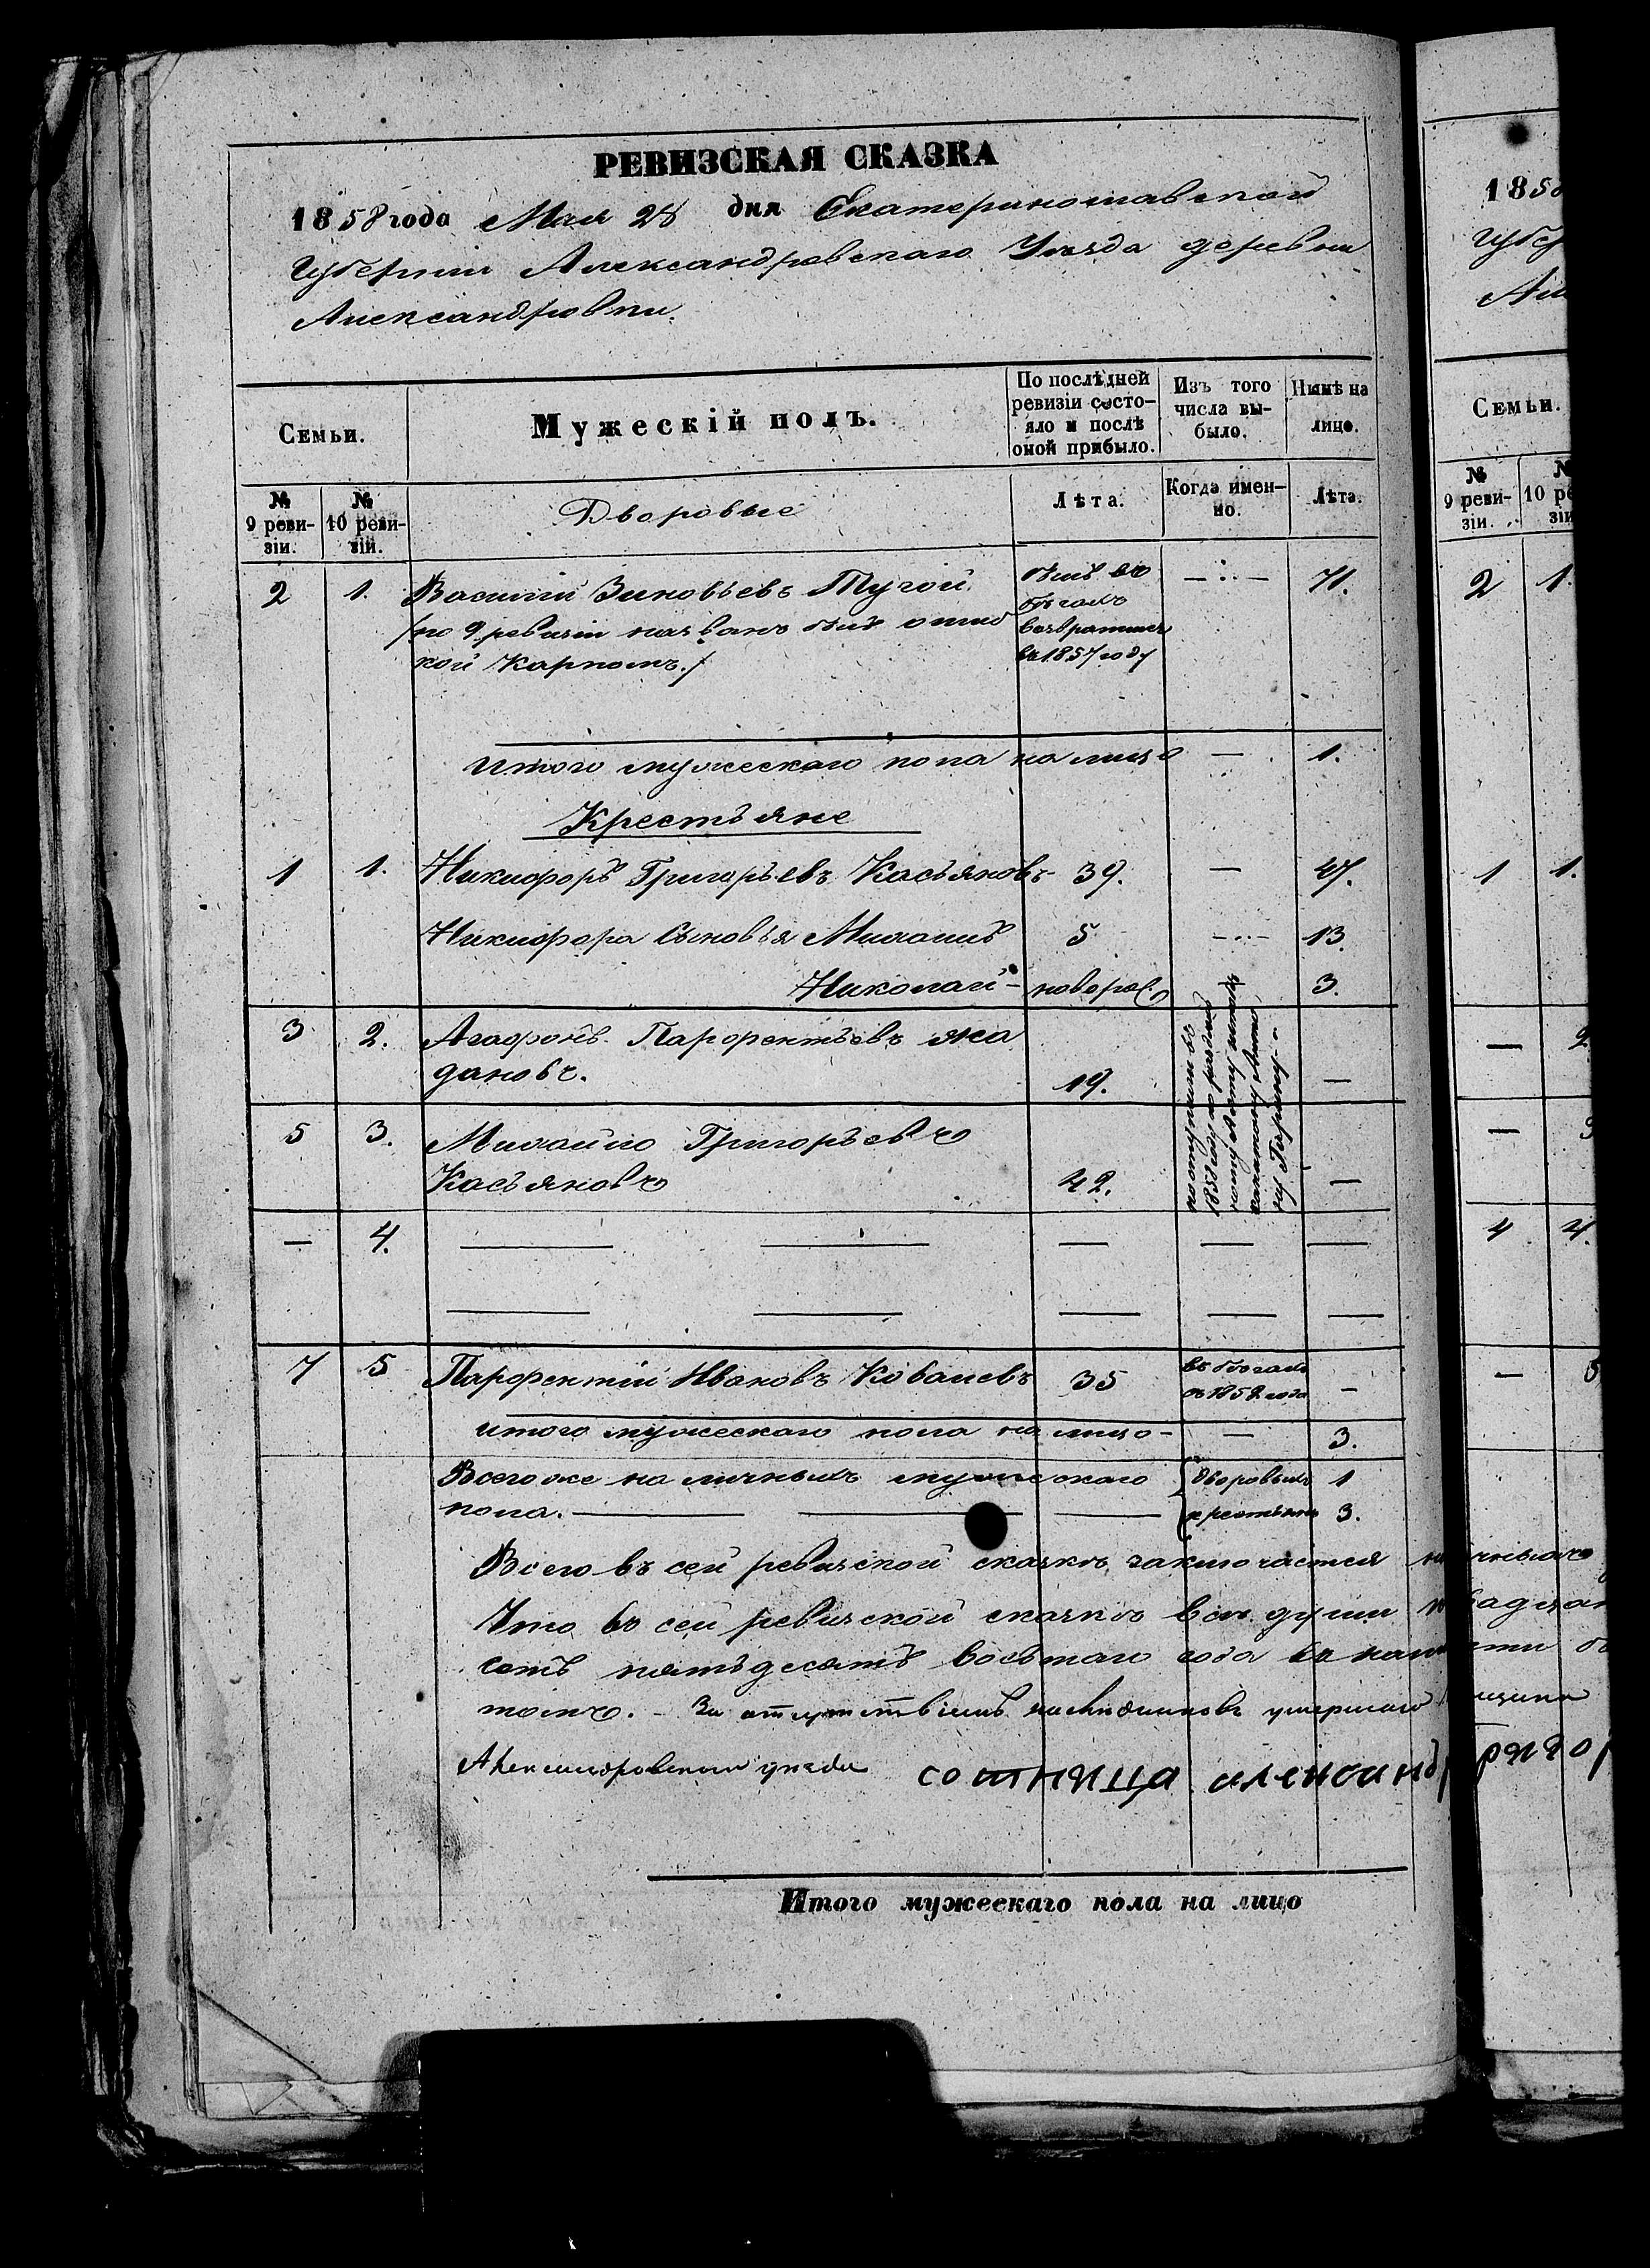 РЕВИЗСКАЯ СКАЗКА
1858 года Мая 28 дня Екатеринославской
Губерніи Александровскаго Уезда деревни
Александровки.
Семьи.
Мужескій полъ.
По послѣдней ревизіи состо-
яло и послѣ
оной прибыло.
Изъ того
числа вы-
было.
Нынѣ на
лицо.
№ 9 реви-
зіи.
№ 10 реви-
зіи.
Дворовые
Лѣта.
Когда имен-
но.
Лѣта.
2 1. Василій Зиновьевъ Тугой былъ въ —..— 71.
/по 9 ревизіи названъ былъ ошиб бѣгахъ
кой Карпомъ./ возвратился
въ 1857 году
Итого мужескаго пола на лицо — 1.
Крестьяне
1 1. Никифоръ Григорьевъ Касьяновъ 39. — 47.
Никифора Сыновья Михаилъ 5 —..— 13.
Николай — новорож. 3.
3 2. Агафонъ Парфентьевъ Жа
дановъ. 19. —
5 3. Михайло Григорьевъ
Касьяновъ 42. —
поступили въ
1852 году по раздѣлу
— 4. — — — — —
— — — — —
7 5 Парфентій Ивановъ Ковалевъ 35 въ бѣгахъ —
съ 1852 года
Итого мужескаго пола на лицо — — 3.
Всего же на личныхъ мужескаго дворовыхъ 1
пола. — — — крестьянъ 3.
Всего въ сей ревизской сказкѣ заключается
Что въ сей ревизской сказкѣ всѣ души
сотъ пятьдесятъ восьмаго года въ
томъ. – За отсутствіемъ наслѣдниковъ умершаго
Александровскаго уезда сотница александр
Итого мужескаго пола на лицо
1858
Губер
Але
Семьи.
№ 9 реви-
зіи.
№ 10 ре
зіи
2 1.
1 1.
— 2
— 3
4 4.
— 5